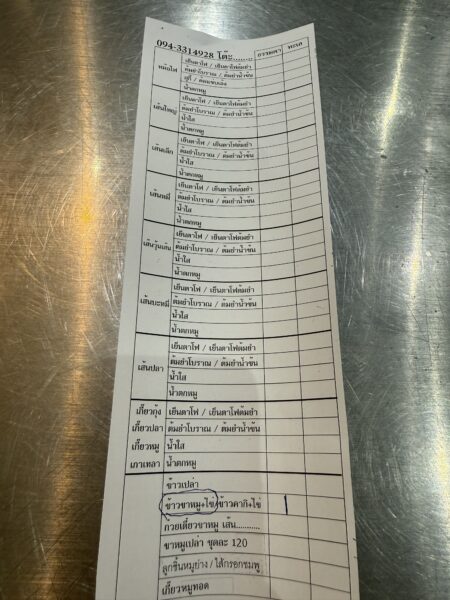 094-3314928 โต๊ะ........ ธรรมดา พิเศษ
หม้อไฟ เย็นตาโฟ / เย็นตาโฟต้มยำ
ต้มยำโบราณ / ต้มยำน้ำข้น
สุกี้
น้ำตกหมู
เส้นใหญ่ เย็นตาโฟ / เย็นตาโฟต้มยำ
ต้มยำโบราณ / ต้มยำน้ำข้น
น้ำใส
น้ำตกหมู
เส้นเล็ก เย็นตาโฟ / เย็นตาโฟต้มยำ
ต้มยำโบราณ / ต้มยำน้ำข้น
น้ำใส
น้ำตกหมู
เส้นหมี่ เย็นตาโฟ / เย็นตาโฟต้มยำ
ต้มยำโบราณ / ต้มยำน้ำข้น
น้ำใส
น้ำตกหมู
เส้นวุ้นเส้น เย็นตาโฟ / เย็นตาโฟต้มยำ
ต้มยำโบราณ / ต้มยำน้ำข้น
น้ำใส
น้ำตกหมู
เส้นบะหมี่ เย็นตาโฟ / เย็นตาโฟต้มยำ
ต้มยำโบราณ / ต้มยำน้ำข้น
น้ำใส
น้ำตกหมู
เส้นปลา เย็นตาโฟ / เย็นตาโฟต้มยำ
ต้มยำโบราณ / ต้มยำน้ำข้น
น้ำใส
น้ำตกหมู
เกี๊ยวกุ้ง เย็นตาโฟ / เย็นตาโฟต้มยำ
เกี๊ยวปลา ต้มยำโบราณ / ต้มยำน้ำข้น
เกี๊ยวหมู น้ำใส
เกาเหลา น้ำตกหมู
ข้าวเปล่า
ข้าวขาหมู+ไข่/ข้าวคากิ+ไข่ 1
ก๋วยเตี๋ยวขาหมู เส้น...........
ขาหมูเปล่า ชุดละ 120
ลูกชิ้นหมูย่าง / ไส้กรอกชมพู
เกี๊ยวหมูทอด